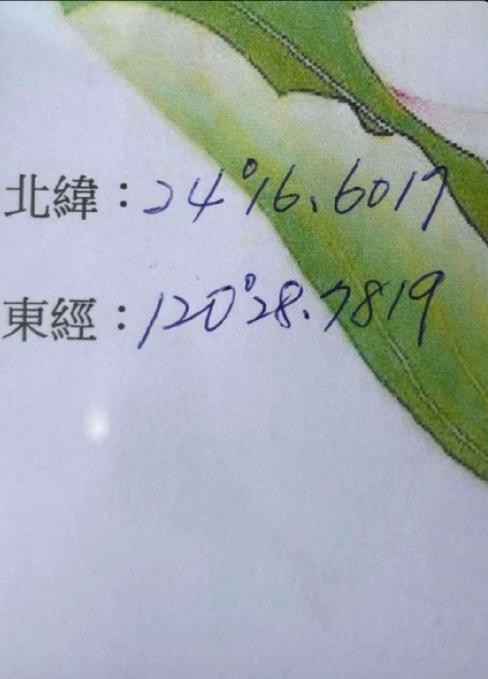 北緯：24°16.6017
東經：120°28.7819